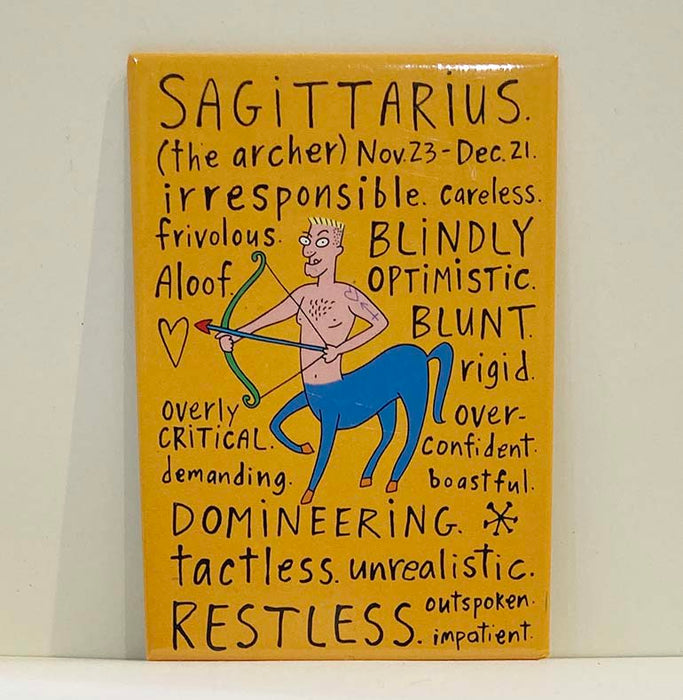 SAGiTTARiUS.
(the archer) Nov.23-Dec.21.
irresponsible. careless.
frivolous. BLiNDLY
Aloof. OPTiMiSTiC.
BLUNT.
rigid.
overly over-
CRiTiCAL. confident.
demanding. boastful.
DOMiNEERiNG.
tactless. unrealistic.
RESTLESS. outspoken.
impatient.